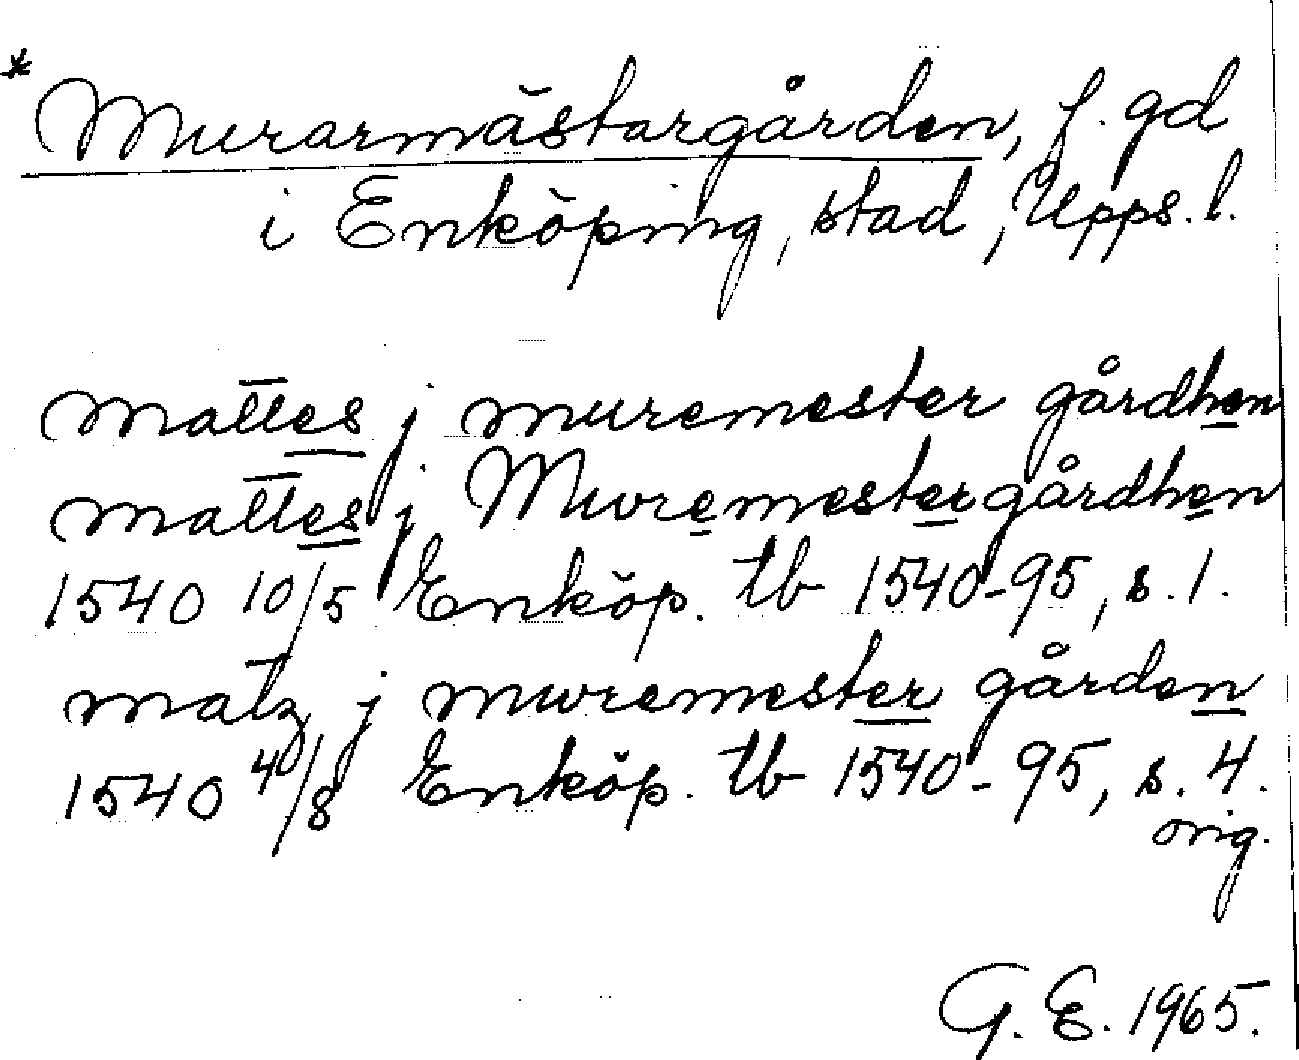 * Murarmästargården, f. gd
i Enköping, stad, Upps. l.
mattes j muremester gårdhen
mattes j Mwremestergårdhen
1540 10/5 Enköp. tb 1540-95, s. 1.
matz j mwremester gården
1540 4/8 Enköp. tb 1540-95, s. 4.
orig.
G. E. 1965.